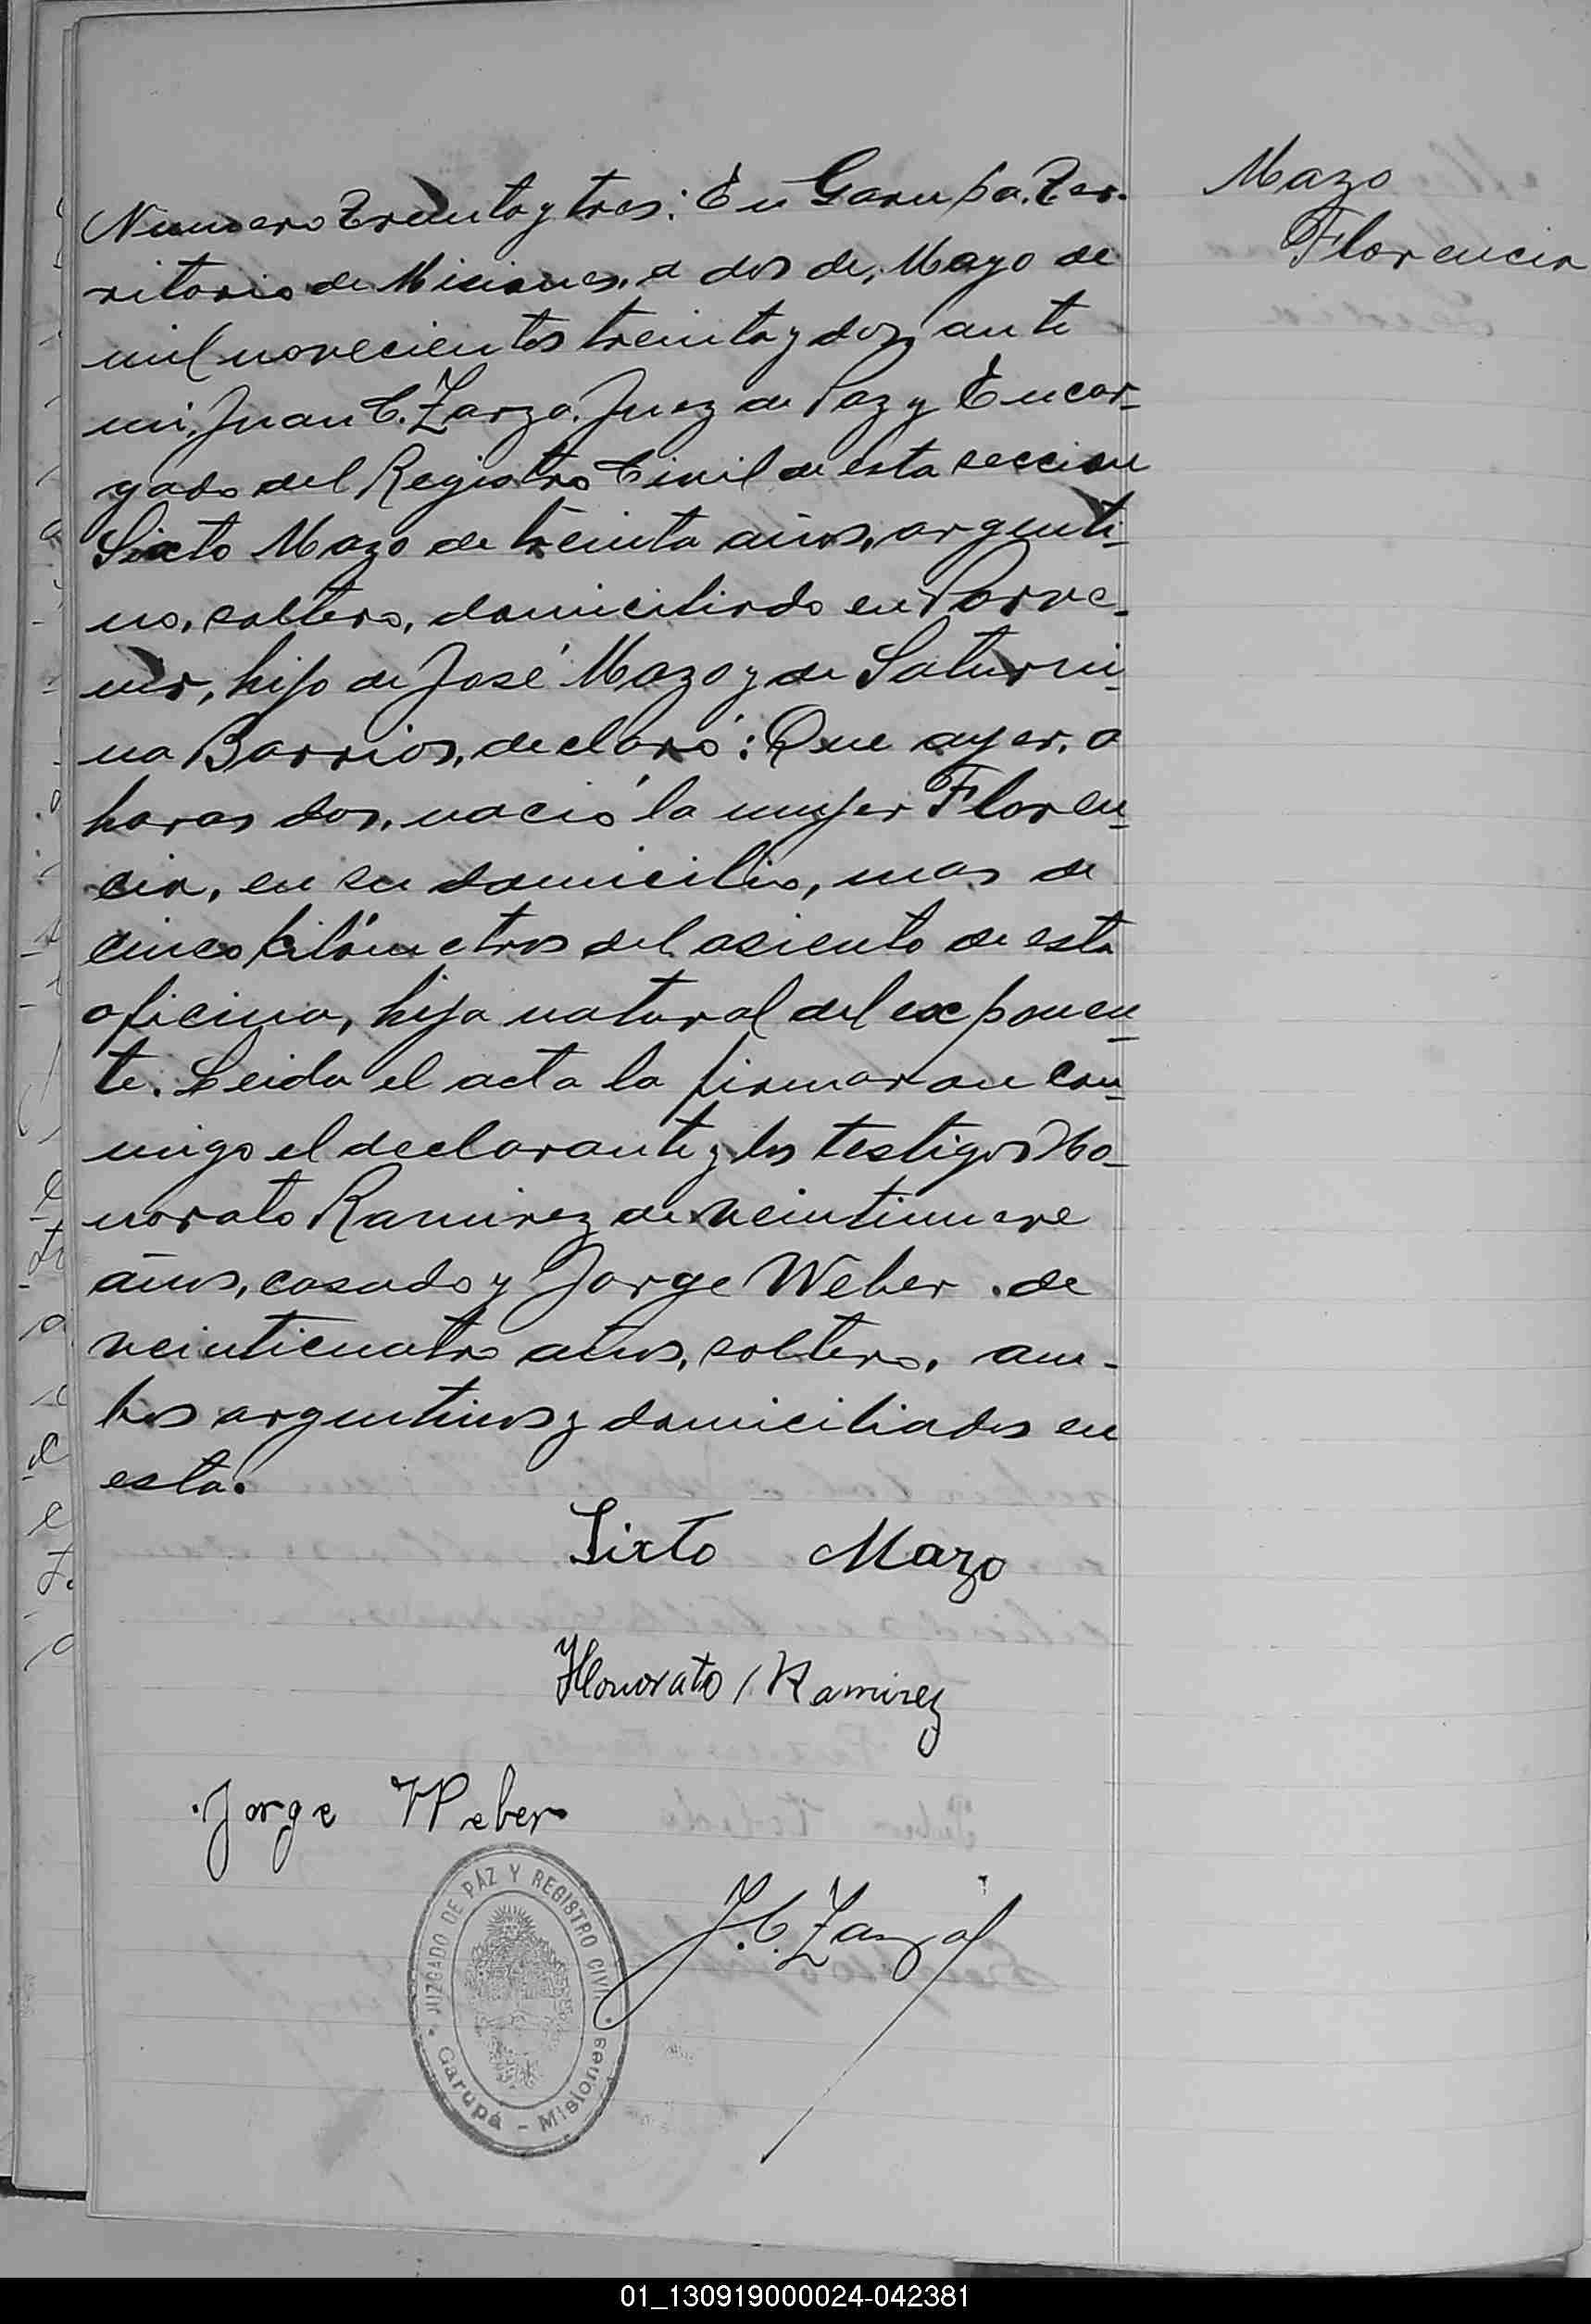 Mazo
Florencia
Numero Treinta y tres: En Garupa. Ter-
ritorio de Misiones, a dos de, Mayo de
mil novecientos treinta y dos, ante
mi, Juan C. Zarza. Juez de Paz y Encar-
gado del Registro Civil de esta seccion
Sixto Mazo de treinta años, argenti-
no, soltero, domiciliado en Porve-
nir, hijo de José Mazo y de Saturni-
na Barrios, declaró: Que ayer, a
horas dos, nació la mujer Floren-
cia, en su domicilio, mas de
cinco kilómetros del asiento de esta
oficina, hija natural del exponen-
te. Leida el acta la firmaron con-
migo el declarante y los testigos Ho-
norato Ramirez de veintinueve
años, casado y Jorge Weber . de
veinticuatro años, soltero, am-
bos argentinos y domiciliados en
esta.
Sixto Mazo
Honorato Ramirez
Jorge Weber
J. C. Zarza
JUZGADO DE PÁZ Y REGISTRO CIVIL
Garupá - Misiones
01_130919000024-042381